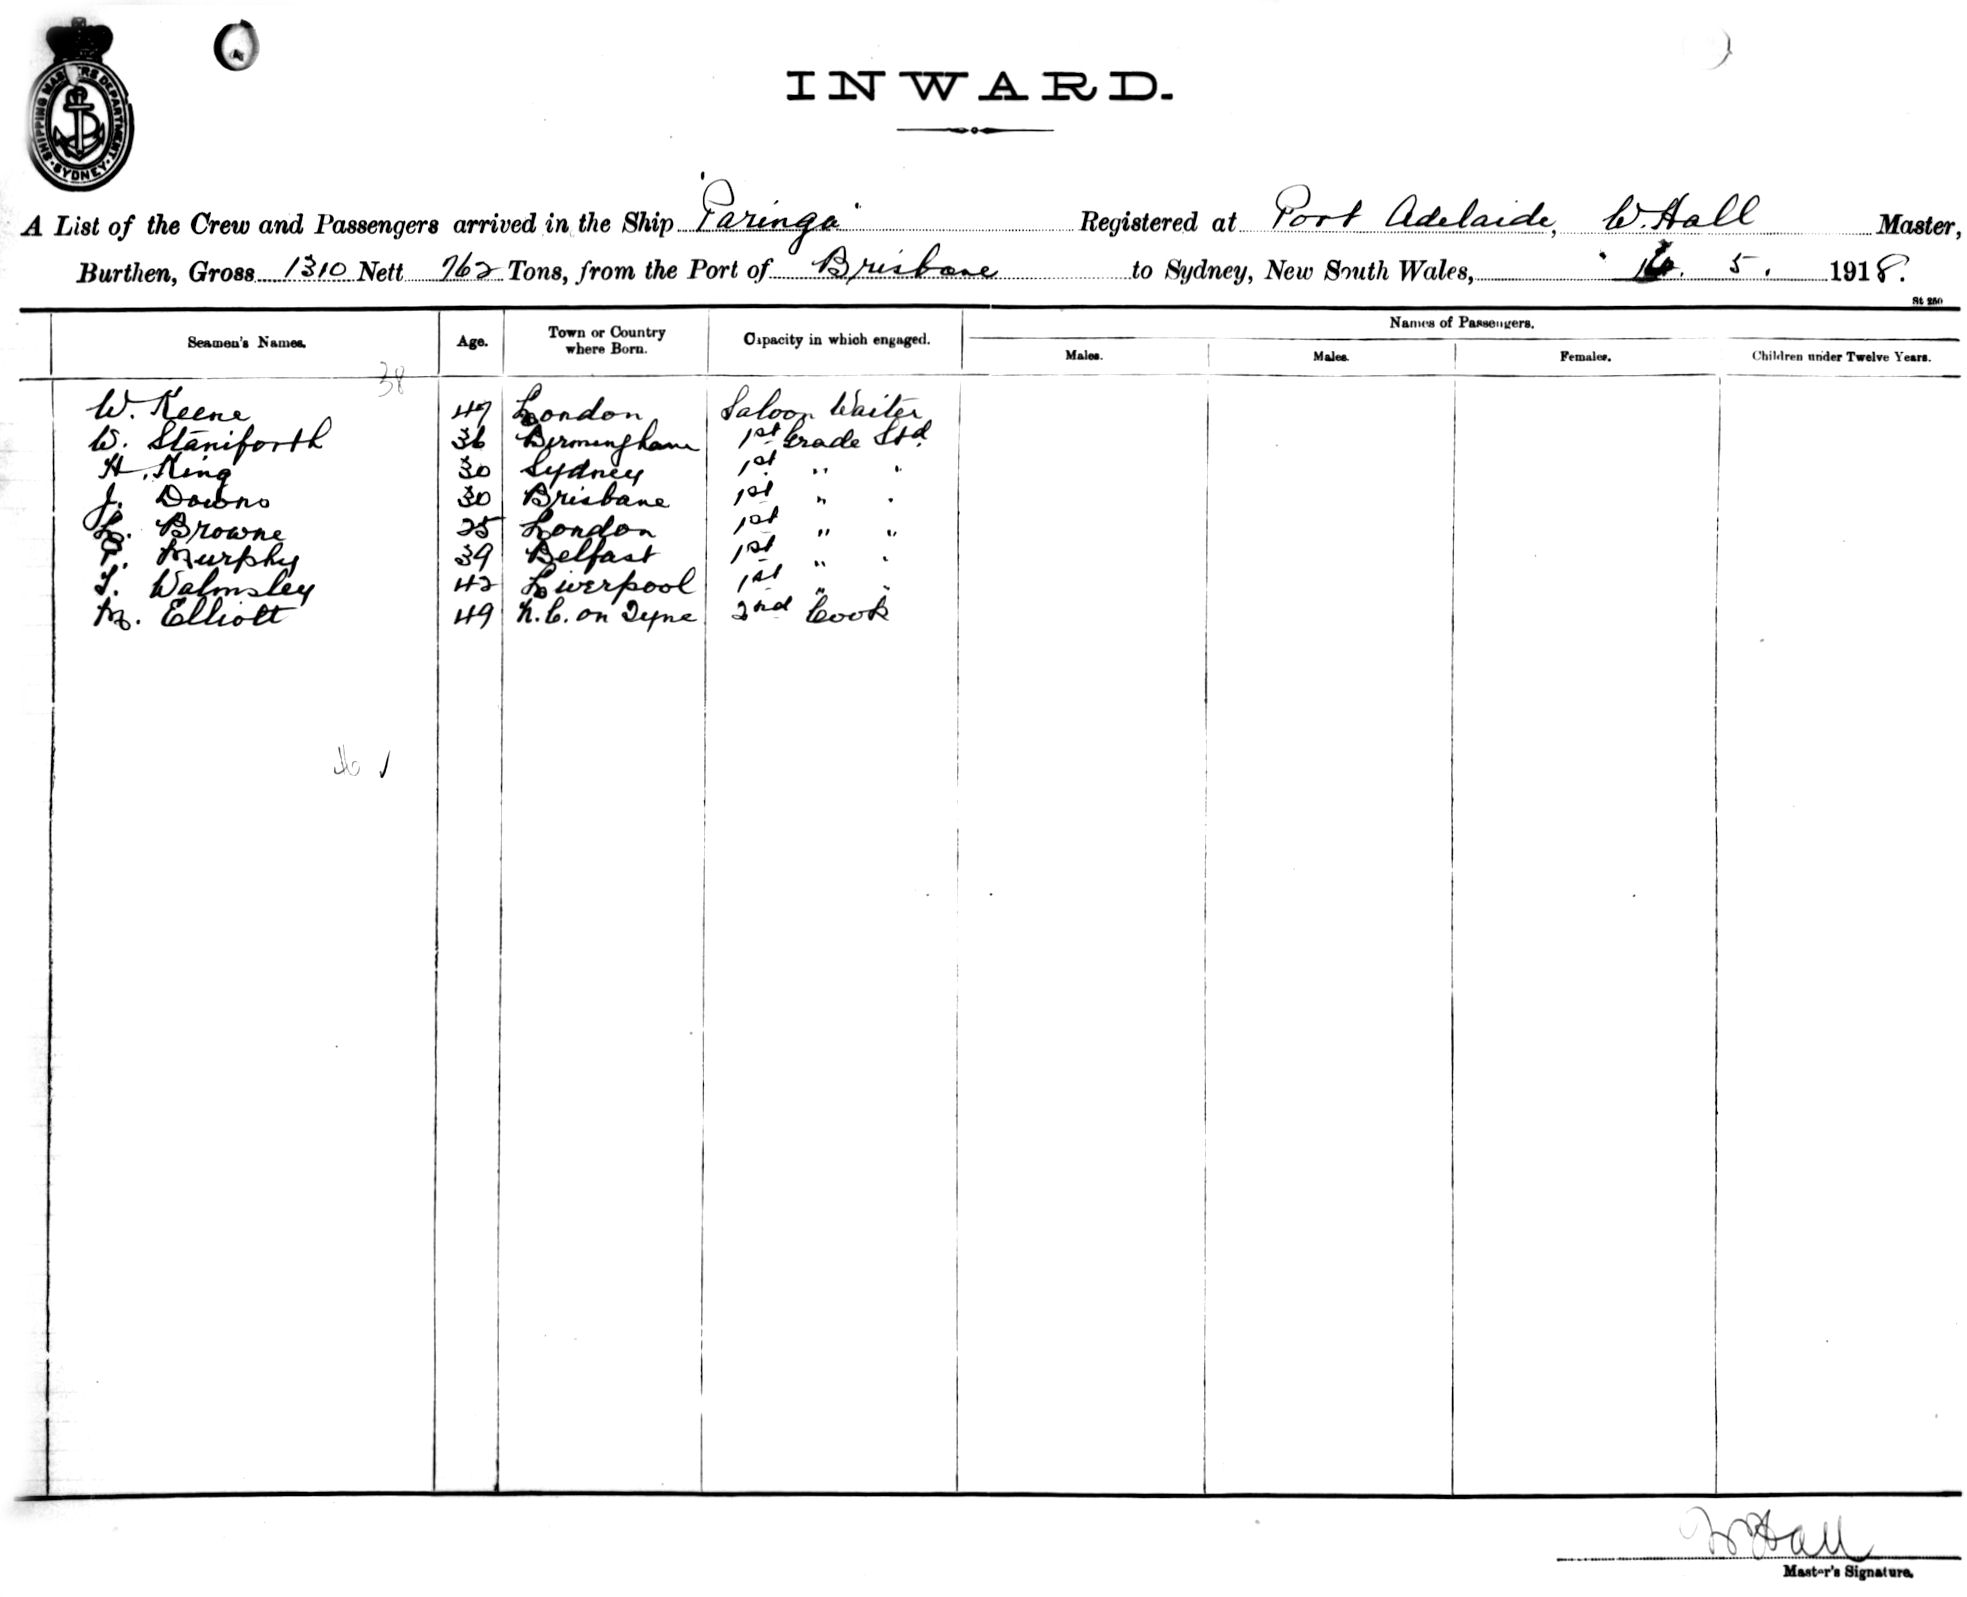 SHIPPING MASTERS DEPARTMENT · SYDNEY ·
INWARD.
A List of the Crew and Passengers arrived in the Ship "Paringa" Registered at Port Adelaide, W. Hall Master,
Burthen, Gross 1310 Nett 762 Tons, from the Port of Brisbane to Sydney, New South Wales, 16. 5. 1918.
St 250
Seamen's Names. Age. Town or Country where Born. Capacity in which engaged. Names of Passengers.
Males. Males. Females. Children under Twelve Years.
38
W. Keene 47 London Saloon Waiter
W. Staniforth 36 Birmingham 1st Grade Std.
H. King 30 Sydney 1st " "
J. Downs 30 Brisbane 1st " "
L. Browne 25 London 1st " "
P. Murphy 39 Belfast 1st " "
T. Walmsley 42 Liverpool 1st " "
M. Elliott 49 N.C. on Tyne 2nd Cook
W Hall
Master's Signature.